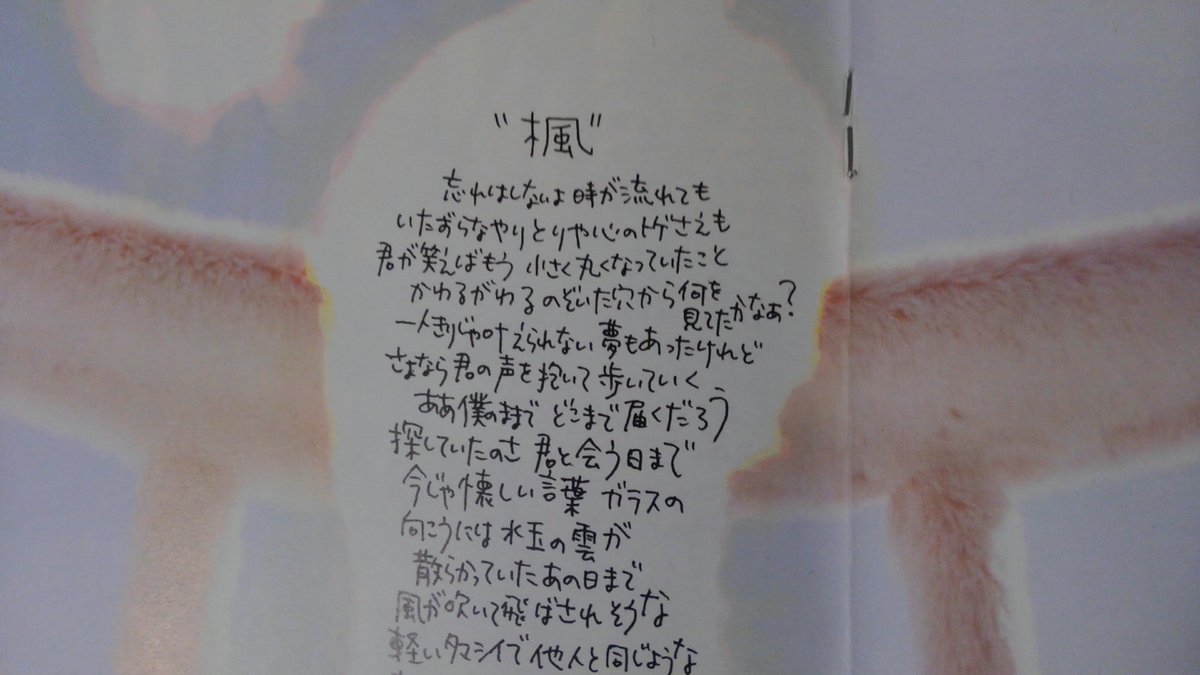 "楓"
忘れはしないよ 時が流れても
いたずらなやりとりや心のトゲさえも
君が笑えばもう 小さく丸くなっていたこと
かわるがわるのぞいた穴から何を
見てたかなぁ?
一人きりじゃ叶えられない夢もあったけれど
さよなら君の声を抱いて歩いていく
ああ僕のままで どこまで届くだろう
探していたのさ 君と会う日まで
今じゃ懐しい言葉 ガラスの
向こうには水玉の雲が
散らかっていた あの日まで
風が吹いて飛ばされそうな
軽いタマシイで他人と同じような